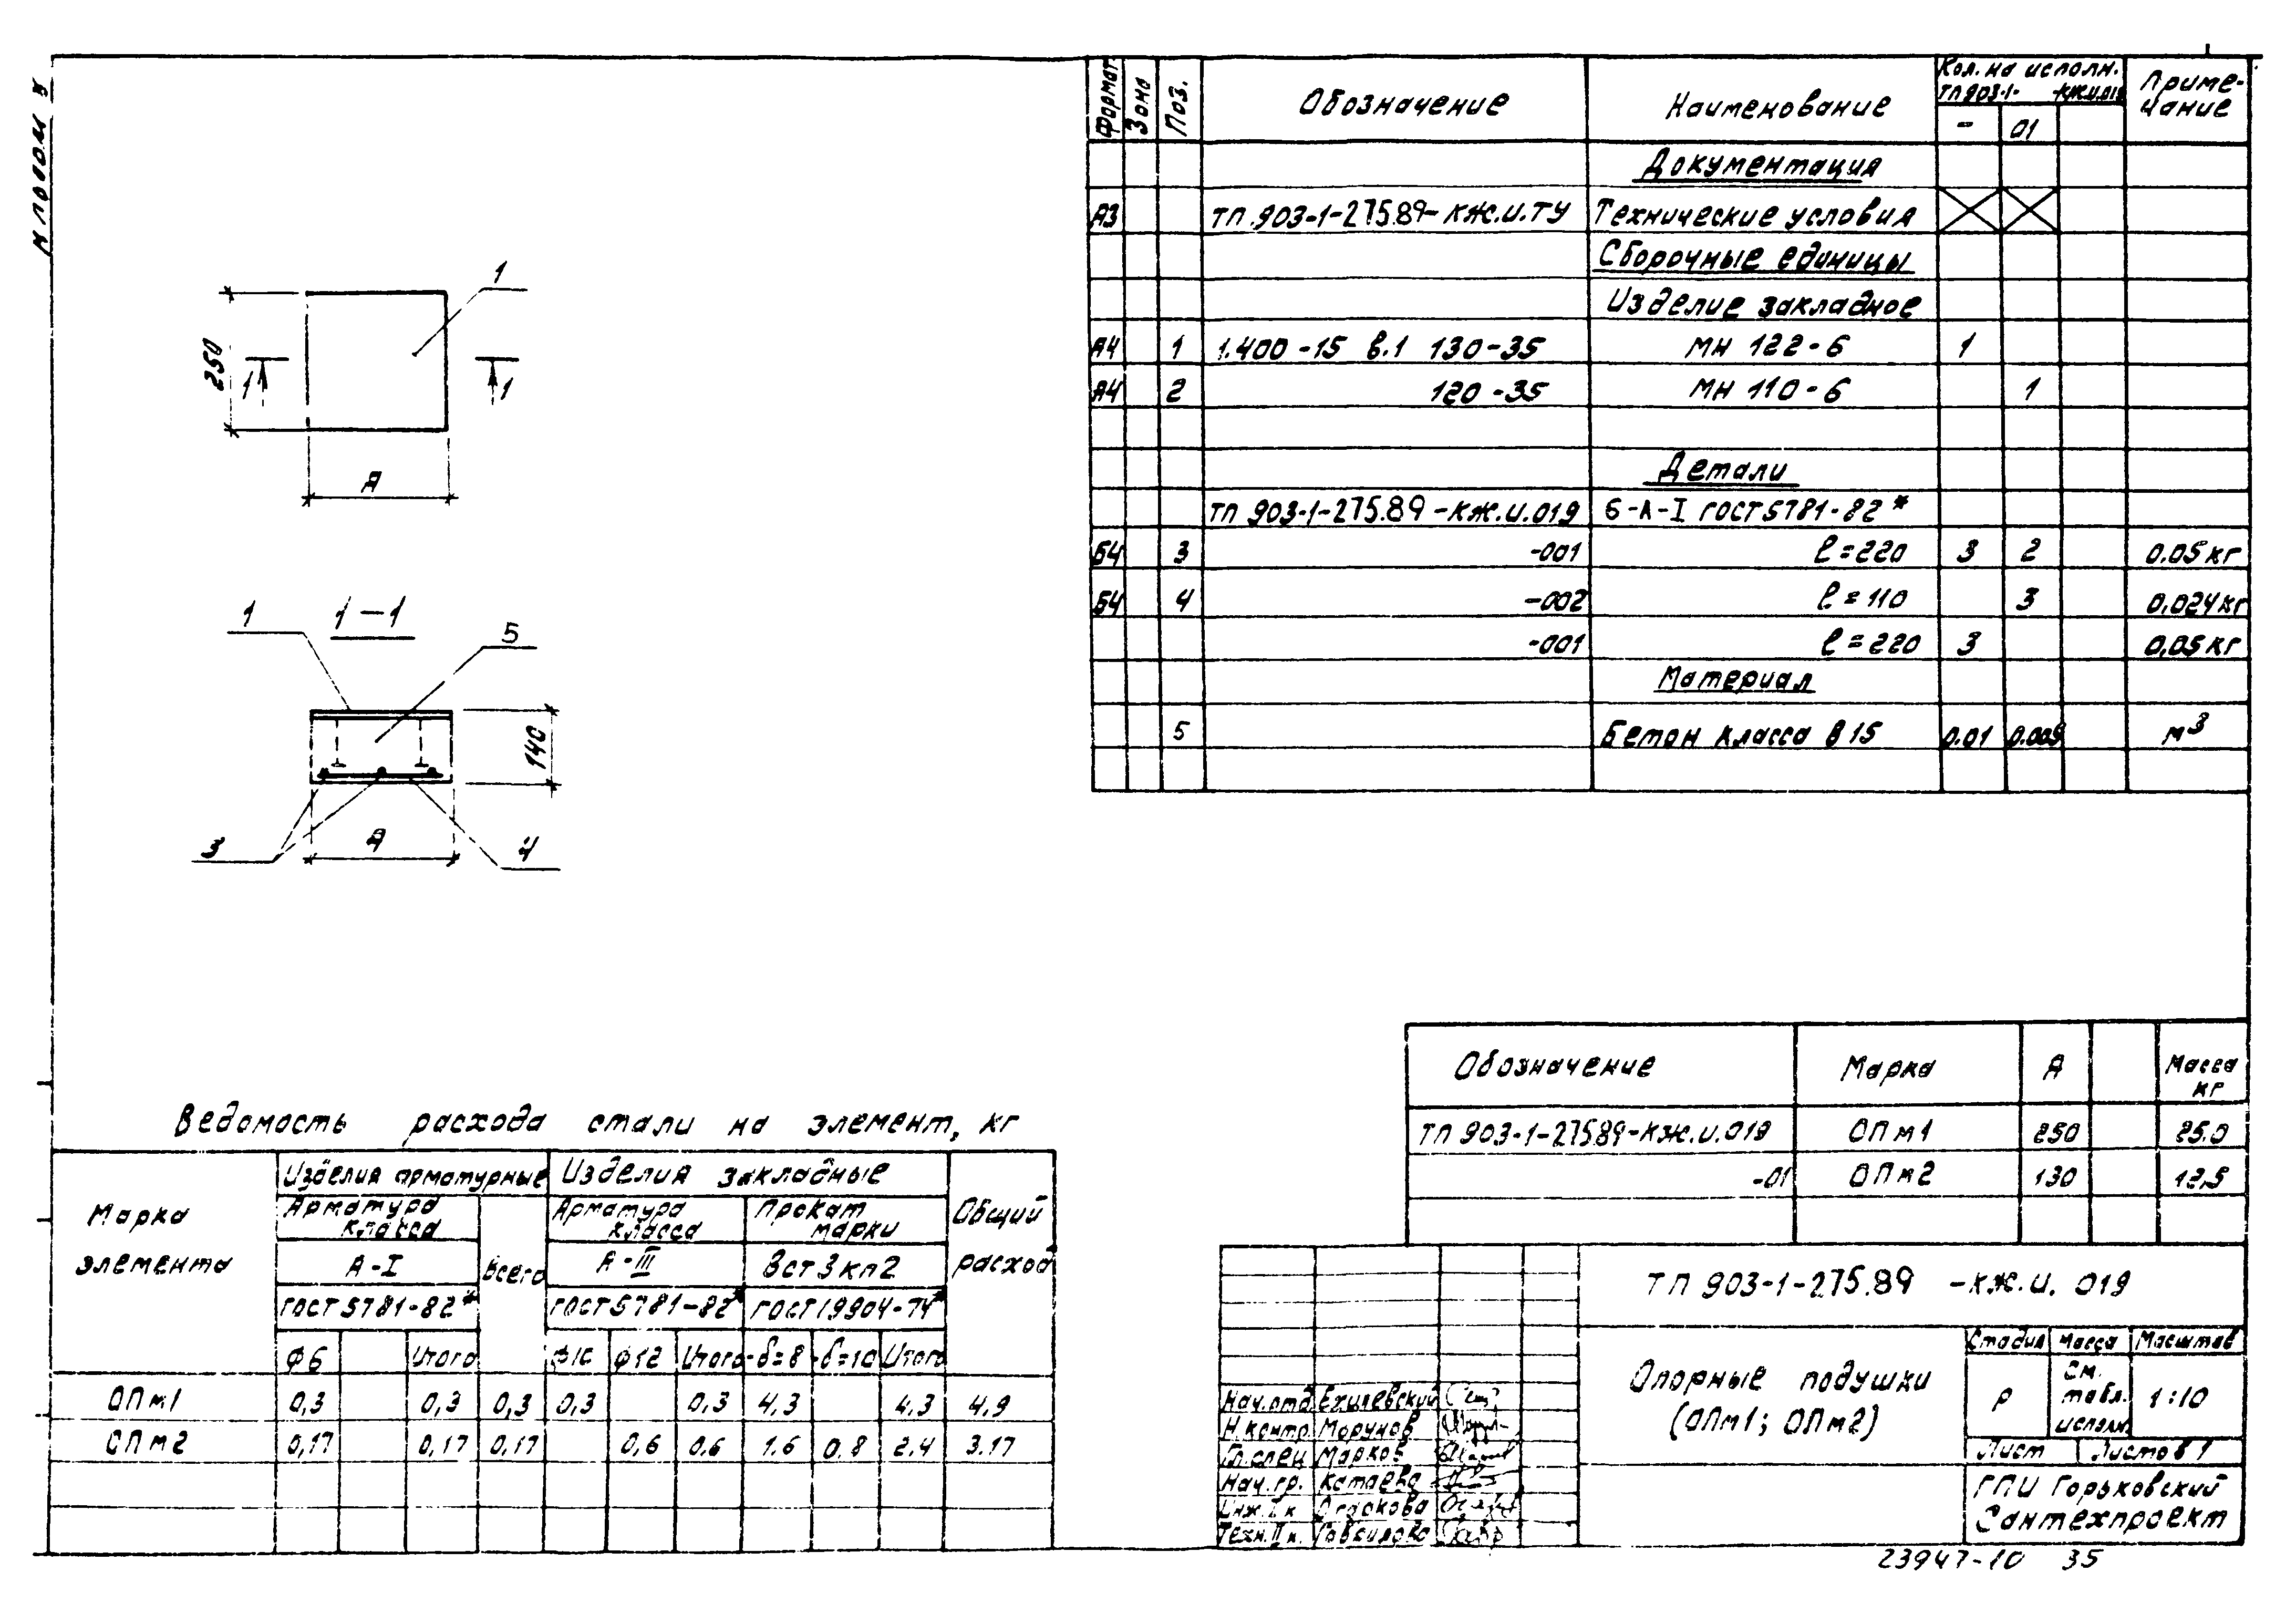 Альбом 5
Формат Зона Поз. Обозначение Наименование Кол. на исполн. ТП 903-1- -КЖ.И.019 Приме-чание
- 01
Документация
А3 ТП.903-1-275.89-КЖ.И.ТУ Технические условия
Сборочные единицы
Изделие закладное
А4 1 1.400-15 в.1 130-35 МН 122-6 1
А4 2 120-35 МН 110-6 1
Детали
ТП 903-1-275.89-КЖ.И.019 6-А-I ГОСТ 5781-82*
Б4 3 -001 ℓ=220 3 2 0.05кг
Б4 4 -002 ℓ=110 3 0.024кг
-001 ℓ=220 3 0,05кг
Материал
5 Бетон класса В15 0.01 0.005 м3
1
250
1 1
А
1-1
1
5
140
3
А
4
Обозначение Марка А Масса кг
ТП 903-1-275.89-КЖ.И.019 ОПм1 250 25.0
-01 ОПм2 130 12,5
Ведомость расхода стали на элемент, кг
Марка элемента
Изделия арматурные Изделия закладные Общий расход
Арматура класса Всего Арматура класса Прокат марки
А-I А-III Вст3кп2
ГОСТ 5781-82* ГОСТ 5781-82* ГОСТ 19904-74*
ф6 Итого ф10 ф12 Итого -δ=8 -δ=10 Итого
ОПм1 0,3 0,3 0,3 0,3 0,3 4,3 4,3 4,9
ОПм2 0,17 0,17 0,17 0,6 0,6 1.6 0.8 2.4 3.17
ТП 903-1-275.89 -КЖ.И. 019
Опорные подушки
(ОПм1; ОПм2)
Стадия Масса Масштаб
Р См. табл. исполн. 1:10
Лист Листов 1
ГПИ Горьковский
Сантехпроект
Нач.отд. Ехилевский
Н.контр. Морунов
Гл.спец Марков
Нач.гр. Катаева
Инж.I к
Техн.II к.
23947-10 35